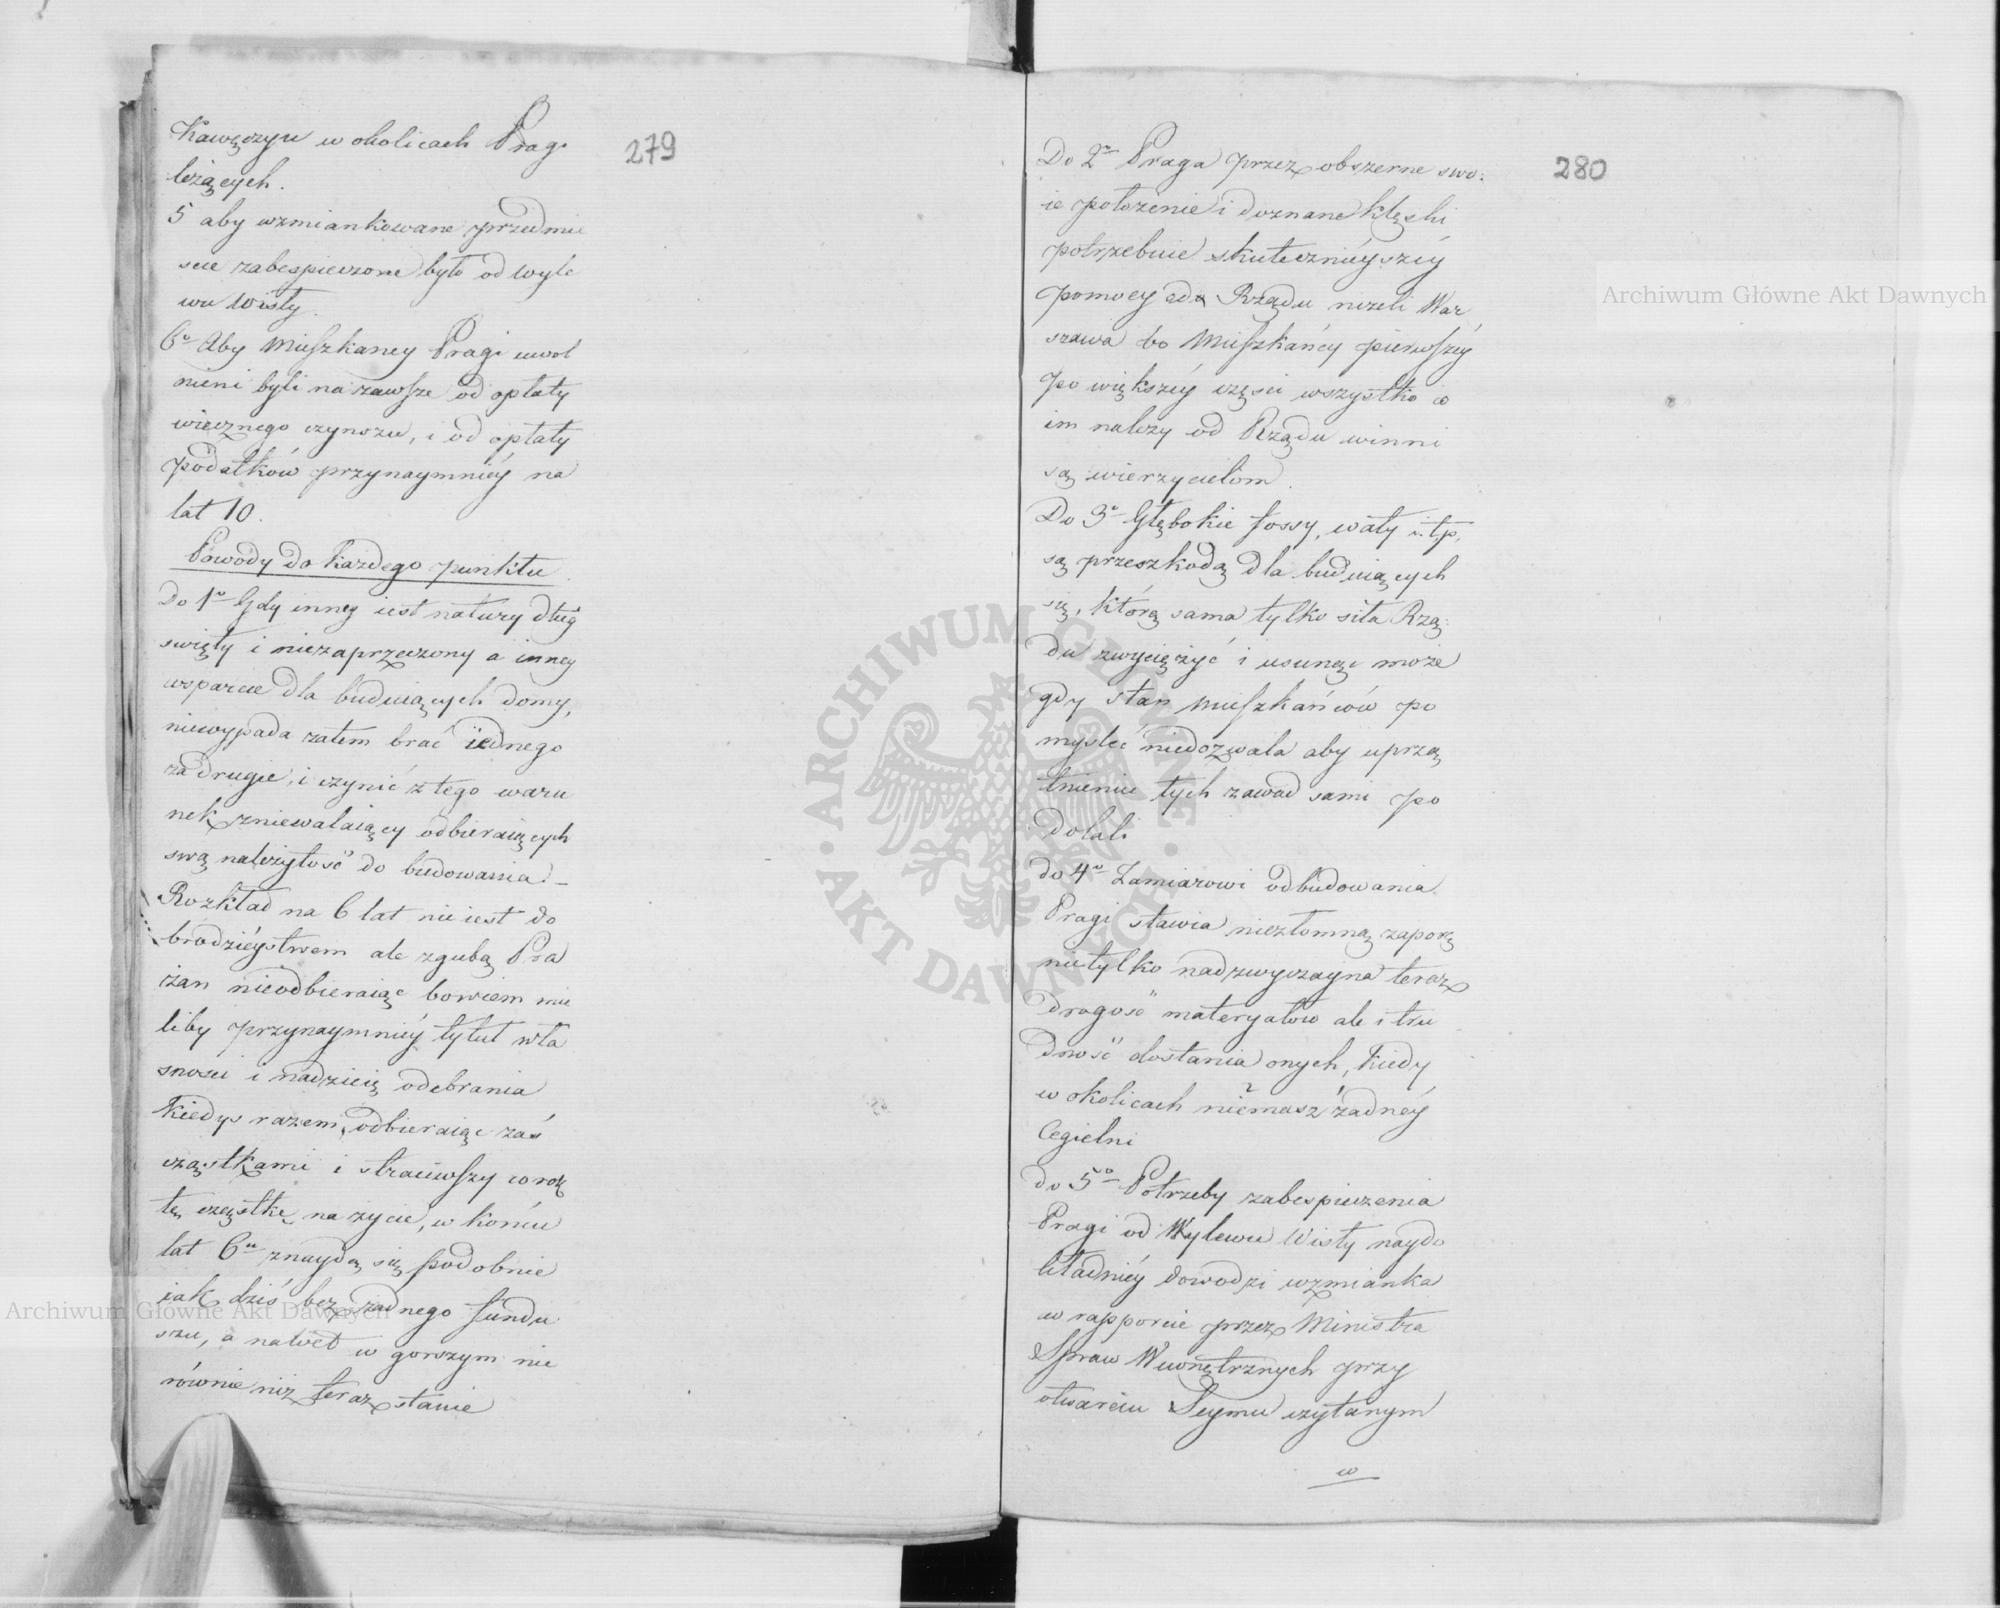 279
Kawęczyn w okolicach Prag
leżących.
5 aby wzmiankowane przedmie
scie zabespieczone było od wyle
wu Wisły.
6o Aby Mieszkancy Pragi uwol
nieni byli na zawsze od opłaty
wiecznego czynszu, i od opłaty
podatków przynaymniéy na
lat 10.
Powody do każdego punktu
Do 1o Gdy inney iest natury dług
swięty i niezaprzeczony a inney
wsparcie dla buduiących domy,
niewypada zatem brać iednego
za drugie, i czynić z tego waru
nek zniewalaiący odbieraiących
swą należytość do budowania. –
Rozkład na 6 lat nie iest do
brodzieystwem ale zgubą Pra
żan nieodbieraiąc bowiem mie
liby przynaymniéy tytuł wła
snosci i nadzieię odebrania
kiedys razem, odbieraiąc zaś
cząstkami i straciwszy co rok
tę cząstkę na życie, w końcu
lat 6u znaydą się podobnie
iak dziś bez żadnego fundu
szu, a nawet w gorszym nie
równie niż teraz stanie
280
Do 2o Praga przez obszerne swo:
ie położenie i doznane klęski
potrzebuie skutecznieyszéy
pomocy od Rządu niżeli War
szawa bo Mieszkańcy pierwszéy
po większéy częsci wszystko co
im należy od Rządu winni
są wierzycielom.
Do 3o Głębokie fossy, wały i.t.p.
są przeszkodą dla buduiących
się, którą sama tylko siła Rzą:
du zwyciężyć i usunąć może
gdy stan Mieszkańców po
mysleć niedozwala aby uprzą
tnieniu tych zawad sami po
dołali
do 4o Zamiarowi odbudowania
Pragi stawia niezłomną zaporę
nietylko nadzwyczayna teraz
drogość materyałów ale i tru
dność dostania onych, kiedy
w okolicach niemasz żadnéy
Cegielni
do 5o Potrzeby zabespieczenia
Pragi od Wylewu Wisły naydo
kładniéy dowodzi wzmianka
w rapporcie przez Ministra
Spraw Wewnętrznych przy
otwarciu Seymu czytanym
w
Archiwum Główne Akt Dawnych
Archiwum Główne Akt Dawnych
ARCHIWUM GŁÓWNE · AKT DAWNYCH ·